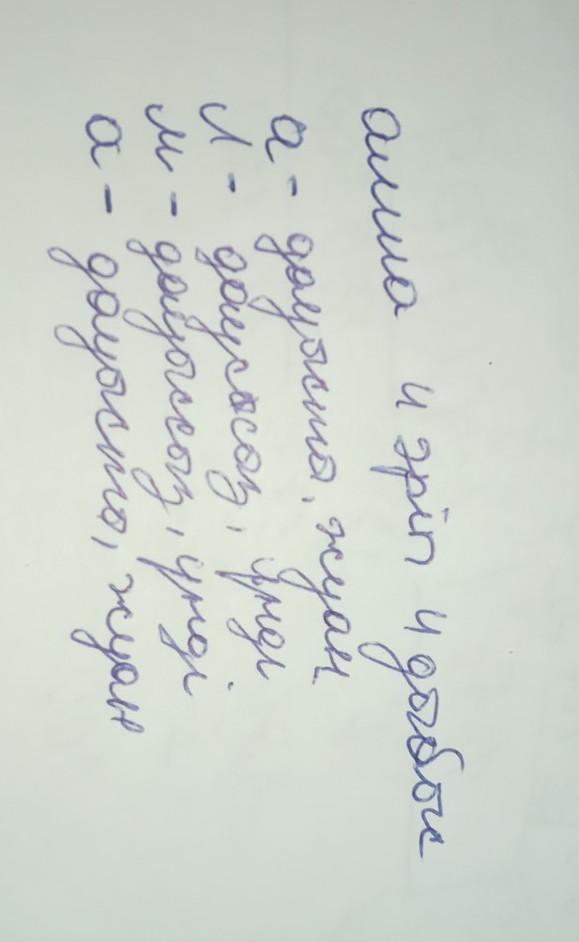 алма 4 әріп 4 дыбыс
а - дауысты, жуан
л - дауыссыз, үнді
м - дауыссыз, үнді
а - дауысты, жуан